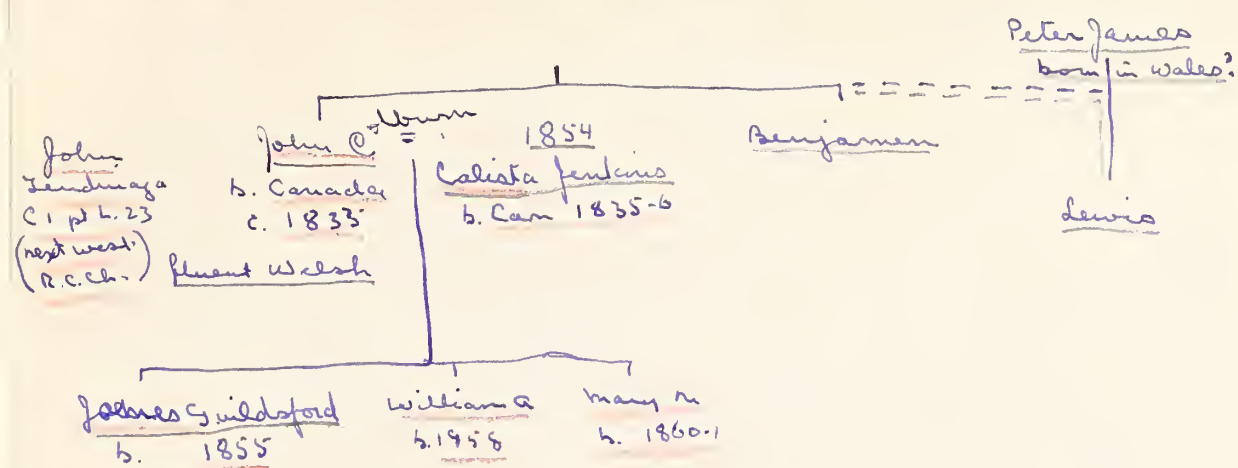 Peter James
born in Wales?
John
C 1 pt L. 23
(next west
R.C.Ch.)
John C.
b. Canada
c. 1833
fluent Welsh
1854
Calista Jenkins
b. Can 1835-6
Benjamen
Lewis
James Guildsford
b. 1855
William A
b. 1958
Mary M
b. 1860-1